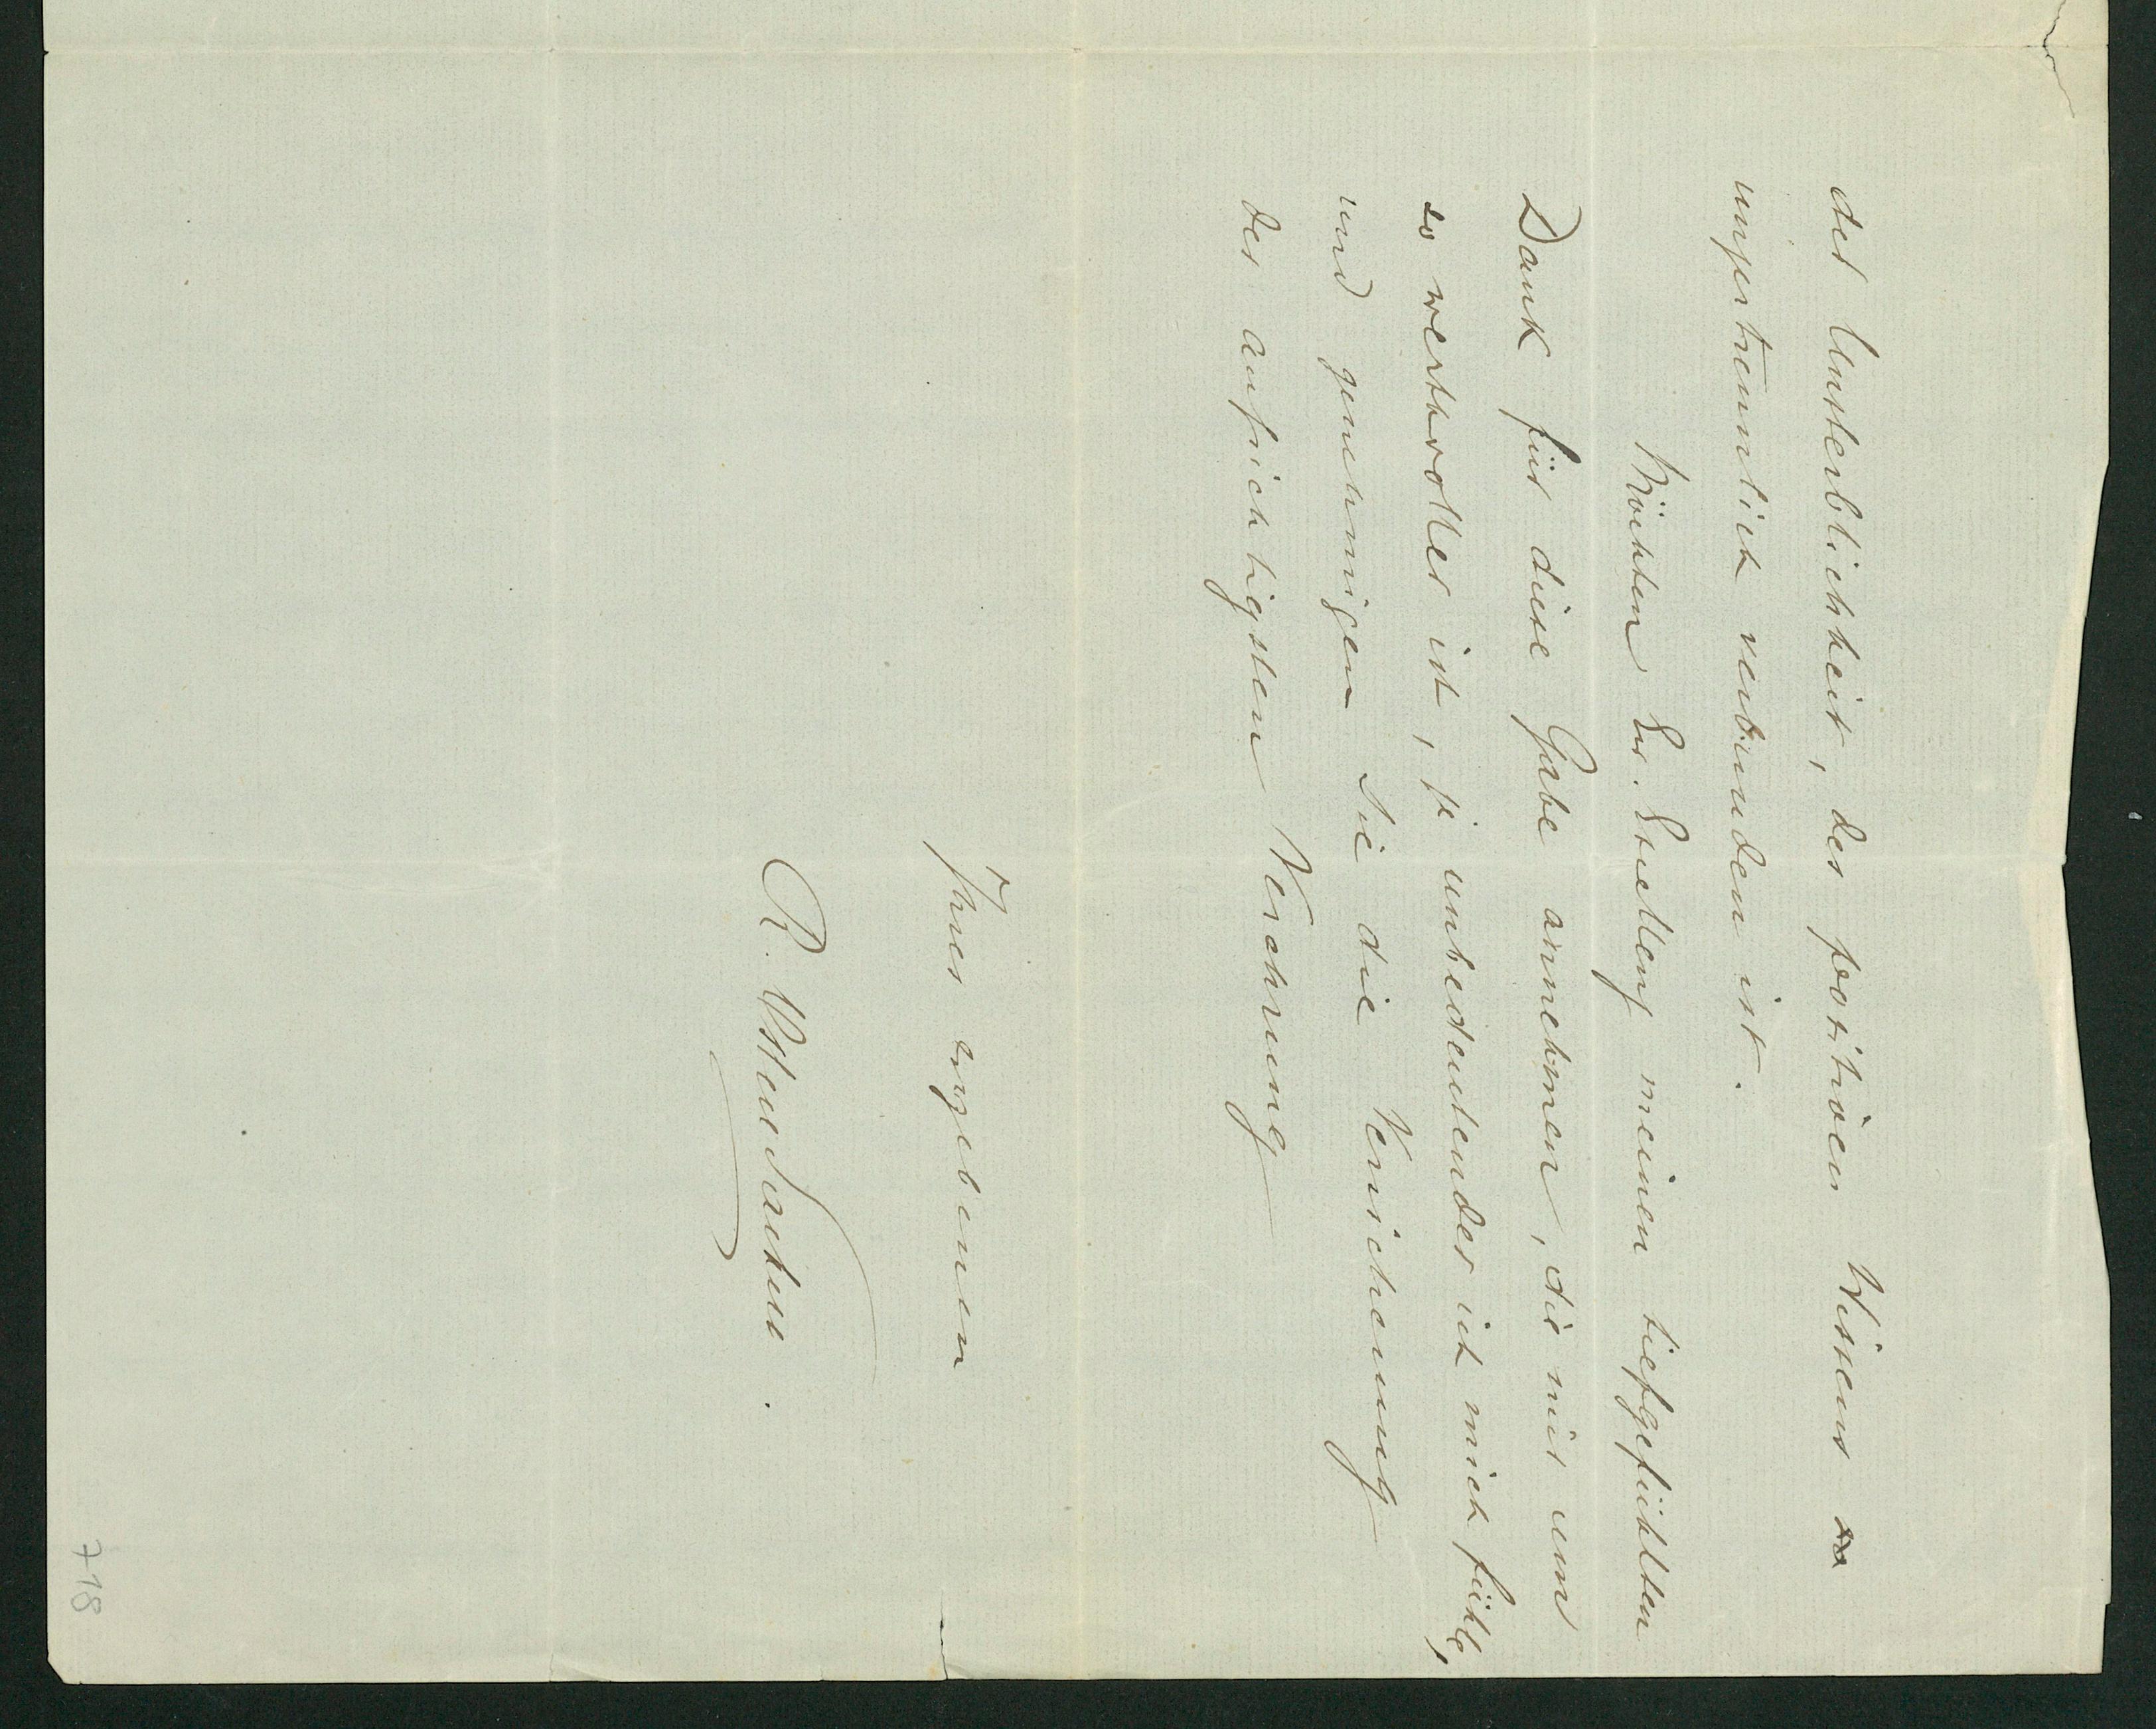 der Unsterblichkeit, des positiven Wissens so
unzertrennlich verbunden ist.
Möchten Ew. Excellenz meinen tiefgefühlten
Dank für diese Gabe annehmen, die mir um
so werthvoller ist, je unbedeutender ich mich fühle,
und genehmigen Sie die Versicherung
der aufrichtigsten Verehrung
Ihres ergebenen
R.
718